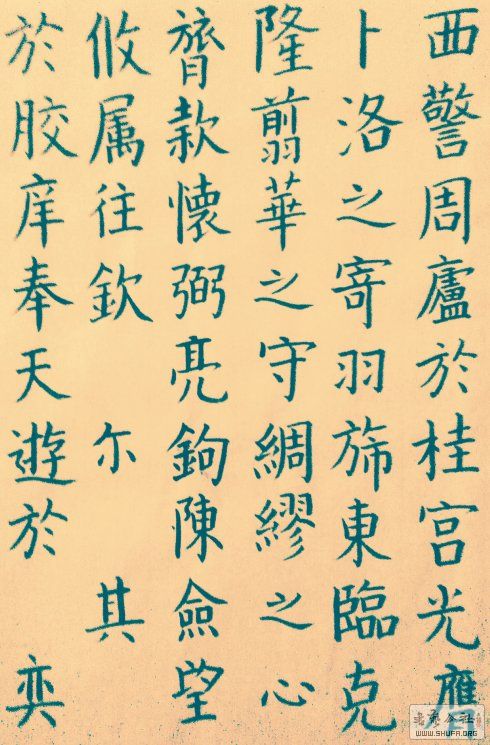 西警周廬於桂宫光應
卜洛之寄羽斾東臨克
隆翦華之守綢繆之心
膂款懷弼亮鉤陳僉望
攸属往欽尓其
於胶庠奉天遊於奕
WWW.SHUFA.ORG